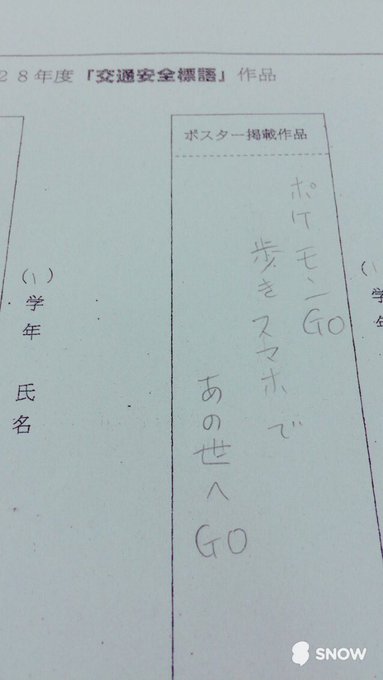 28年度「交通安全標語」作品
ポスター掲載作品
ポケモンGO
歩きスマホで
あの世へGO
(1)
学年 氏名
(1)
学年
SNOW